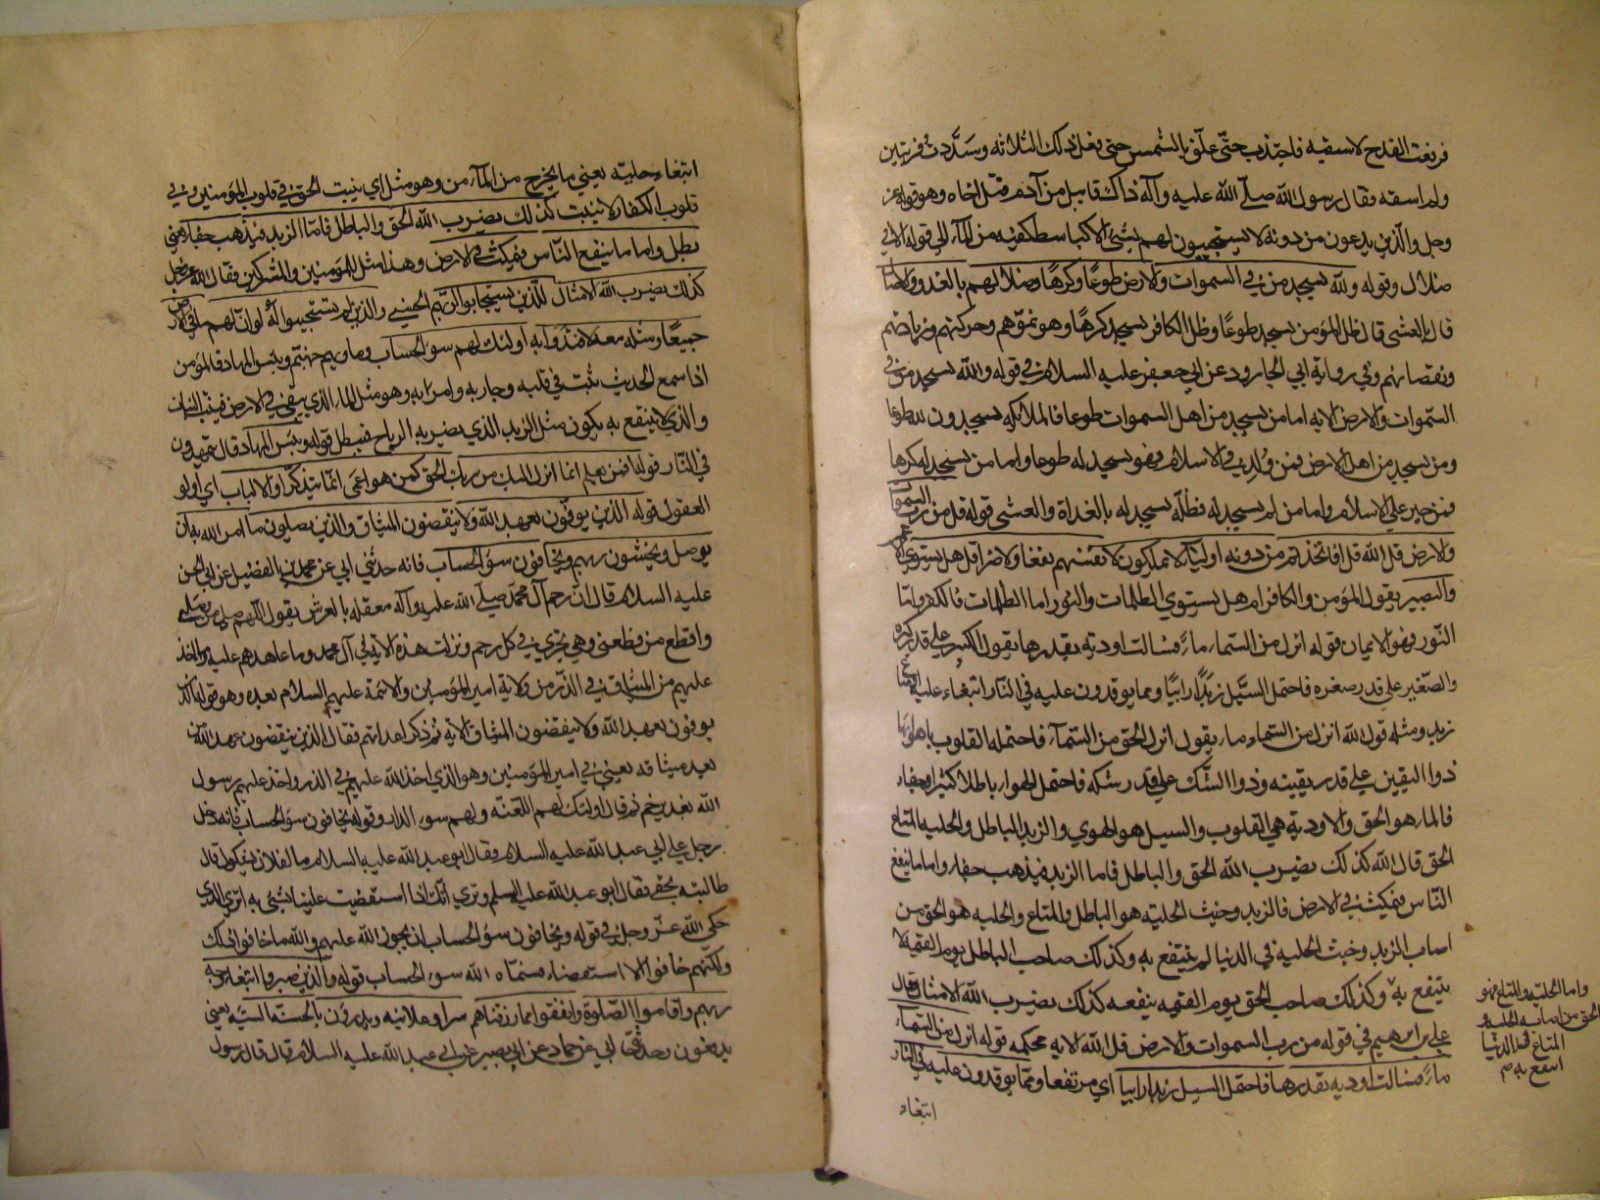 فرفعت القدح لاسقيه فاجتذب حتى علق بالشمس حتى فعل ذلك الثلاثة وسددت قربتين
ولم اسقه فقال رسول الله صلى الله عليه وآله ذاك قابيل من آدم قتل اخاه وهو قوله عز
وجل والذين يدعون من دونه لا يستجيبون لهم بشئ الا كباسط كفيه من المآء الى قوله الا في
ضلال وقوله ولله يسجد من في السموات والارض طوعا وكرها وضلالهم بالغدو والاصا
قال بالعشى قال ظل المؤمن يسجد طوعا وظل الكافر يسجد كرها وهو نموهم وحركتهم وزيادتهم
ونقصانهم وفي رواية ابي الجارود عن ابي جعفر عليه السلام في قوله ولله يسجد من في
السموات والارض الاية اما من يسجد من اهل السموات طوعا فالملائكه يسجدون لله طوعا
ومن يسجد من اهل الارض فمن ولد في الاسلام فهو يسجد له طوعا واما من يسجد له كرها
فمن جبر على الاسلام واما من لم يسجد له فظله يسجد له بالغداة والعشى قوله قل من رب السموات
والارض قل الله قل افاتخذتم من دونه اوليآء لا يملكون لانفسهم نفعا ولا ضرا قل هل يستوي الاعمى
والبصير يقول المؤمن والكافر ام هل يستوي الظلمات والنور اما الظلمات فالكفر واما
النور فهو الايمان قوله انزل من السماء مآء فسالت اودية بقدرها يقول الكبير على قدر كبره
والصغير على قدر صغره فاحتمل السيل زبدا رابيا ومما يوقدون عليه في النار ابتغاء حلية او متاع
زبد ومثله قول الله انزل من السماء ماء يقول انزل الحق من السمآء فاحتمله القلوب باهوائها
ذوا اليقين على قدر يقينه وذوا الشك على قدر شكه فاحتمل الهوا باطلا كثيرا وجفاء
فالماء هو الحق والاودية هي القلوب والسيل هو الهوى والزبد الباطل والحليه المتاع
الحق قال الله كذلك يضرب الله الحق والباطل فاما الزبد فيذهب جفاء واما ما ينفع
الناس فيمكث في الارض فالزبد وخبث الحليه هو الباطل والمتاع والحليه هو الحق من
اصاب الزبد وخبث الحليه في الدنيا لم ينتفع به وكذلك صاحب الباطل يوم القيمة لا
ينتفع به وكذلك صاحب الحق يوم القيمه ينفعه كذلك يضرب الله الامثال وقال
على بن ابرهيم في قوله من رب السموات والارض قل الله الايه محكمه قوله انزل من السماء
مآء فسالت اوديه بقدرها فاحتمل السيل زبدا رابيا اي مرتفعا ومما يوقدون عليه في النار
ابتغاء
واما الحليه والمتاع فهو
الحق من اصاب الحليه و
المتاع في الدنيا
انتفع به صح
ابتغاء حلية يعني ما يخرج من المآء من وهو مثل اي يثبت الحق في قلوب المؤمنين وفي
قلوب الكفار لا يثبت كذلك يضرب الله الحق والباطل فاما الزبد فيذهب جفاء يعني
يبطل واما ما ينفع الناس فيمكث في الارض وهذا مثل المؤمنين والمشركين فقال الله عز وجل
كذلك يضرب الله الامثال للذين استجابوا لربهم الحسنى والذين لم يستجيبوا له لو ان لهم ما في الارض
جميعا ومثله معه لافتدوا به اولئك لهم سوء الحساب وماويهم جهنم وبئس المهاد فالمؤمن
اذا سمع الحديث ثبت في قلبه وجاربه وامر به وهو مثل الماء الذي يبقى في الارض فينبت النبات
والذي لا ينتفع به يكون مثل الزبد الذي يضربه الرياح فيبطل قوله وبئس المهاد قال يمهدون
في النار قوله افمن يعلم انما انزل اليك من ربك الحق كمن هو اعمى انما يتذكر اولو الالباب اي اولو
العقول قوله الذين يوفون بعهد الله ولا ينقضون الميثاق والذين يصلون ما امر الله به ان
يوصل ويخشون ربهم ويخافون سوء الحساب فانه حدثني ابي عن محمد بن الفضيل عن ابي الحسن
عليه السلام قال ان رحم آل محمد صلى الله عليه وآله معلقه بالعرش يقول اللهم صل من وصلني
واقطع من قطعني وهي تجري في كل رحم ونزلت هذه الاية في آل محمد وما عاهدهم عليه وما اخذ
عليهم من الميثاق في الذر من ولاية امير المؤمنين والائمة عليهم السلام بعده وهو قوله الذين
يوفون بعهد الله ولا ينقضون الميثاق الاية ثم ذكر اعدائهم فقال الذين ينقضون عهد الله من
بعد ميثاقه يعني في امير المؤمنين وهو الذي اخذ الله عليهم في الذر واخذ عليهم رسول
الله بغدير خم ثم قال اولئك لهم اللعنه ولهم سوء الدار وقوله يخافون سوء الحساب فانه دخل
رجل على ابي عبد الله عليه السلام فقال ابو عبد الله عليه السلام ما لفلان يشكوك قال
طالبته بحقي فقال ابو عبد الله عليه السلم وترى انك اذا استقضيت عليه لم تسئ به اترى الذي
حكى الله عز وجل في قوله ويخافون سوء الحساب ان يجور الله عليهم والله ما خافوا ذلك
ولكنهم خافوا الاستقصاء فسماه الله سوء الحساب قوله والذين صبروا ابتغاء وجه
ربهم واقاموا الصلوة وانفقوا مما رزقناهم سرا وعلانيه ويدرؤن بالحسنة السيئه يعني
يدفعون وحدثني ابي عن حماد عن ابي بصير عن ابي عبد الله عليه السلام قال قال رسول